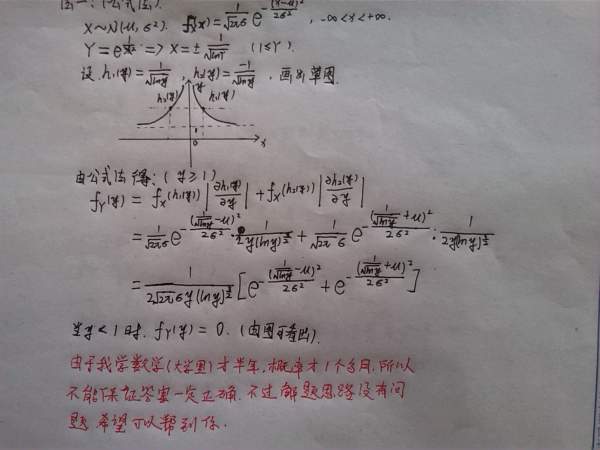 法一:(公式法).
X~N(μ,σ²). fₓ(x)=1/(√2π σ) e^(-(x-μ)²/(2σ²)), -∞<x<+∞.
Y=e^(1/x²) => X=±1/√(lnY) (1≤Y).
设 h₁(y)=1/√(lny), h₂(y)=-1/√(lny), 画出草图.
y
h₂(y) h₁(y)
1
x
由公式法得:(y≥1)
f_Y(y) = fₓ(h₁(y)) |∂h₁(y)/∂y| + fₓ(h₂(y)) |∂h₂(y)/∂y|
= 1/(√2π σ) e^(-(1/√(lny) -μ)²/(2σ²)) · 1/(2y(lny)^(3/2)) + 1/(√2π σ) e^(-(1/√(lny) +μ)²/(2σ²)) · 1/(2y(lny)^(3/2))
= 1/(2√2π σ y(lny)^(3/2)) [e^(-(1/√(lny) -μ)²/(2σ²)) + e^(-(1/√(lny) +μ)²/(2σ²))]
当y<1时, f_Y(y)=0. (由图可看出).
由于我学数学(大学里)才半年,概率才1个多月,所以
不能保证答案一定正确.不过解题思路没有问
题.希望可以帮到你.